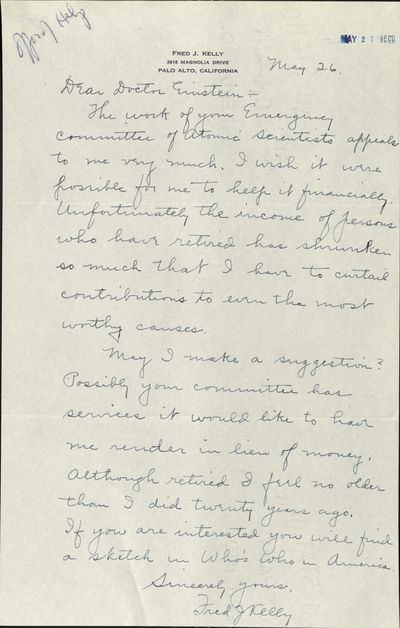 Offer of Help
MAY 27 RECD
FRED J. KELLY
2818 MAGNOLIA DRIVE
PALO ALTO, CALIFORNIA
May 26.
Dear Doctor Einstein:-
The work of your Emergency
committee of Atomic Scientists appeals
to me very much. I wish it were
possible for me to help it financially.
Unfortunately the income of persons
who have retired has shrunken
so much that I have to curtail
contributions to even the most
worthy causes.
May I make a suggestion?
Possibly your committee has
services it would like to have
me render in lieu of money.
Although retired I feel no older
than I did twenty years ago.
If you are interested you will find
a sketch in Who's Who in America.
Sincerely yours,
Fred J Kelly